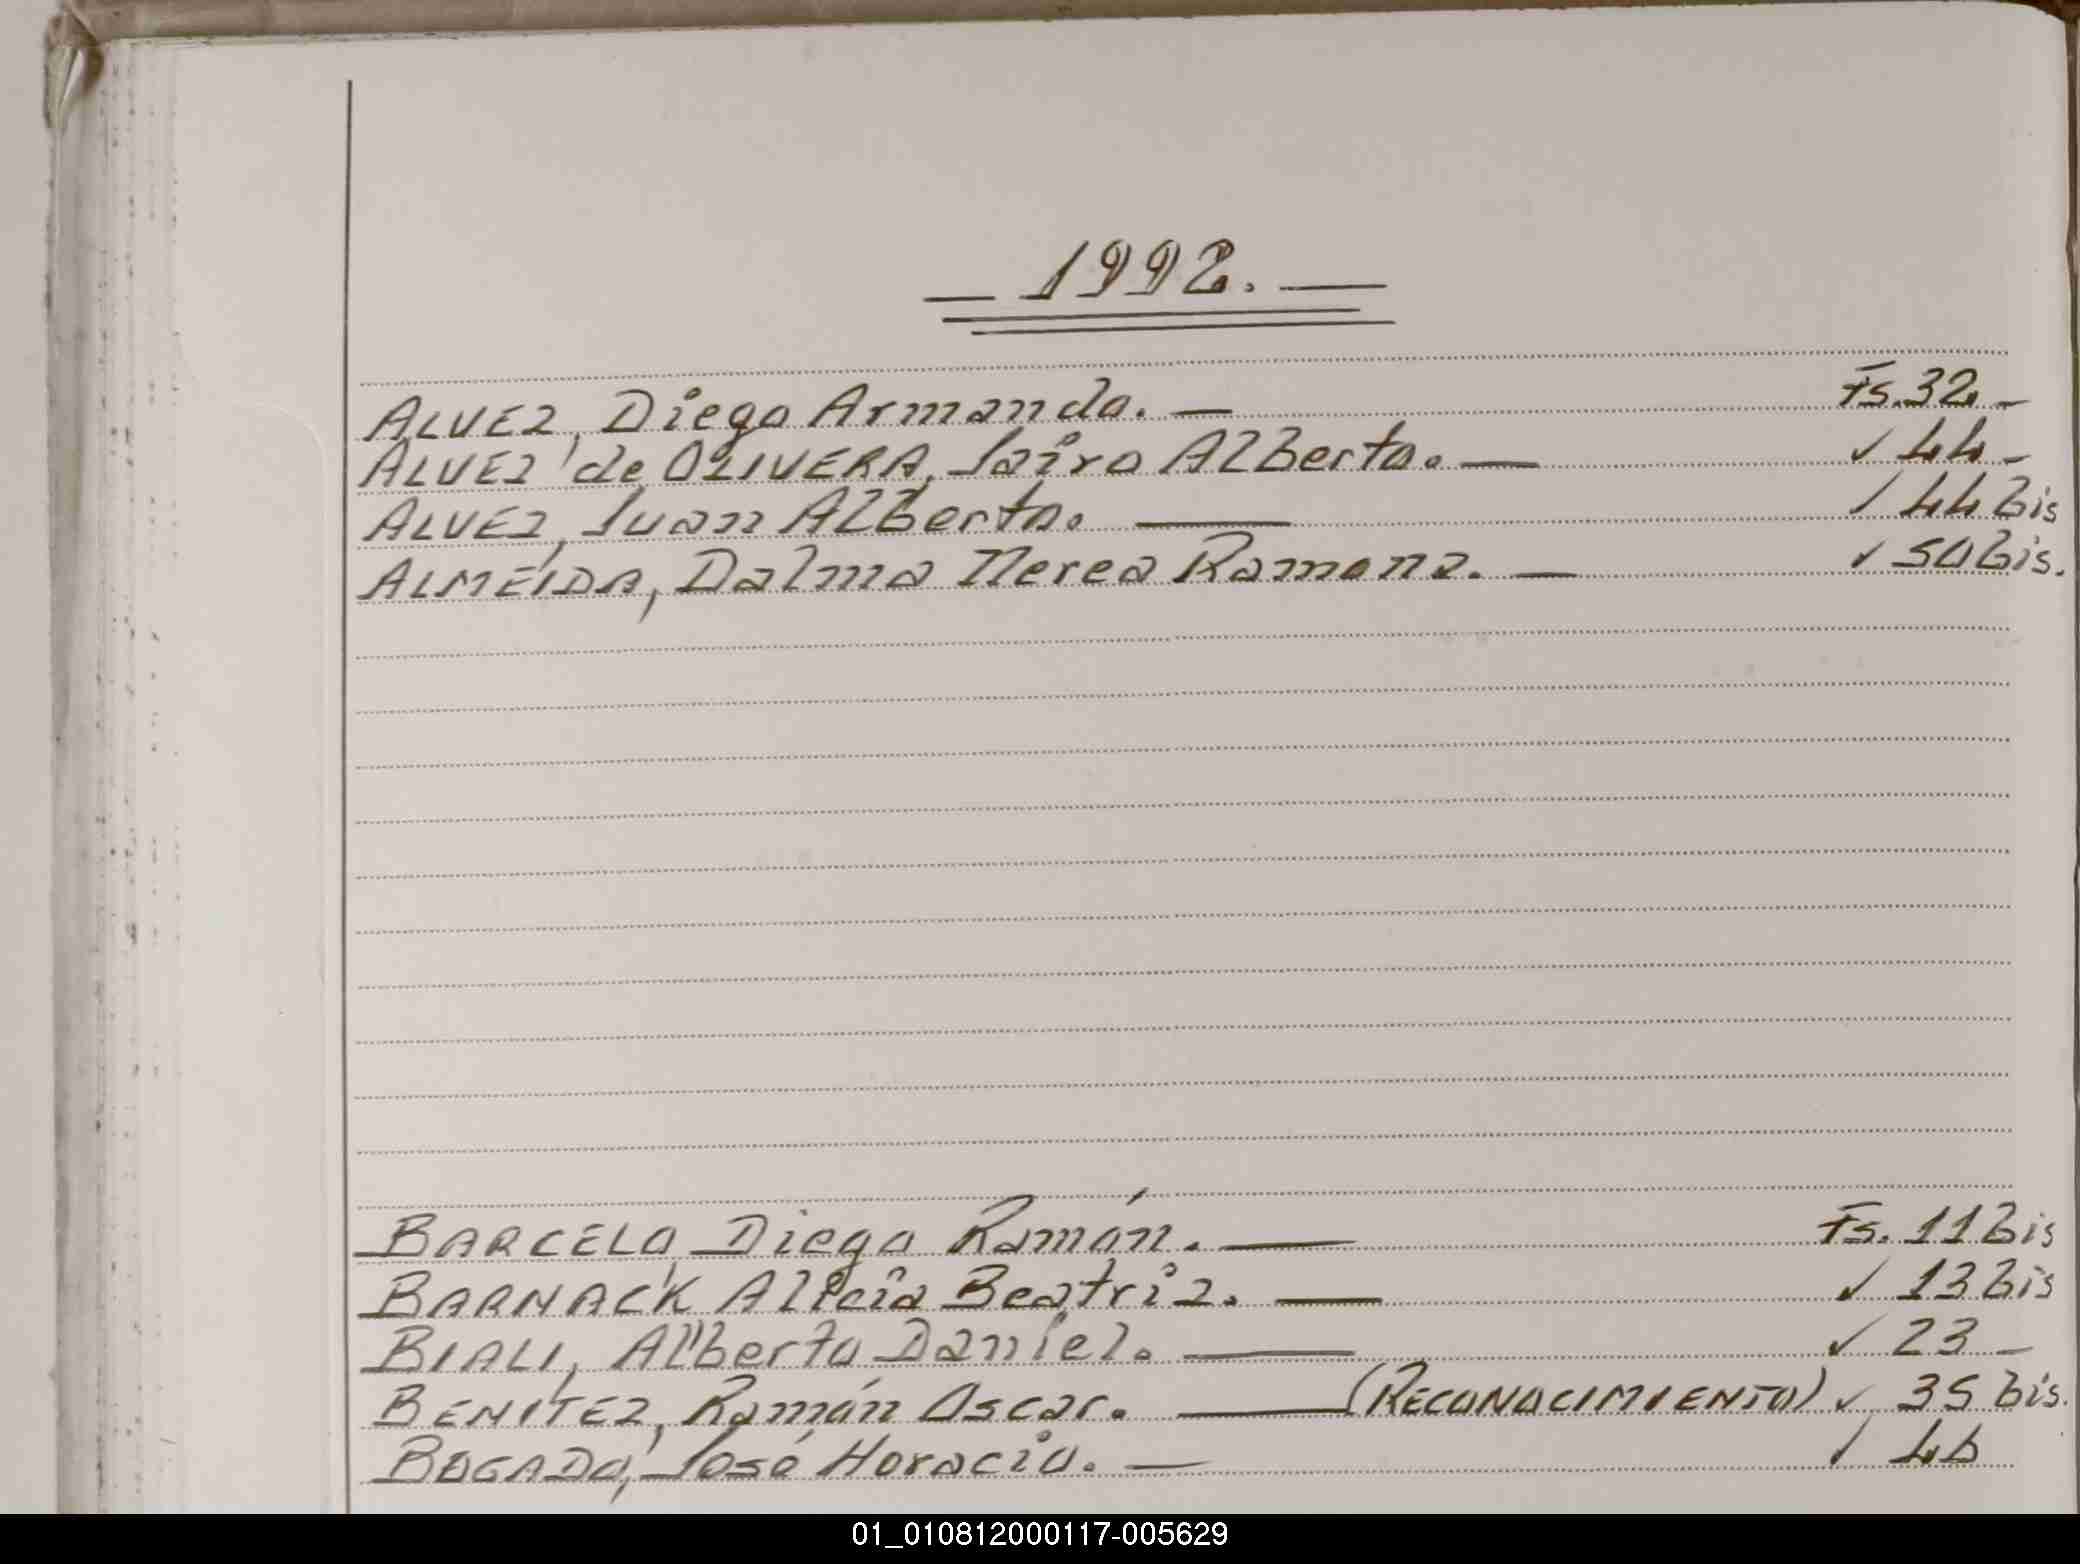 — 1992. —
ALVEZ, Diego Armando. — Fs. 32 —
ALVEZ de OLIVERA, Jairo Alberto. — ✓ 44 —
ALVEZ, Juan Alberto. — / 44 bis
ALMEIDA, Dalma Nerea Ramona. — ✓ 50 bis.
BARCELO, Diego Ramón. — Fs. 11 bis
BARNACK, Alicia Beatriz. — ✓ 13 bis
BIALI, Alberto Daniel. — ✓ 23 —
BENITEZ, Ramón Oscar. — (RECONOCIMIENTO) ✓ 35 bis.
BOGADO, José Horacio. — ✓ 46
01_010812000117-005629